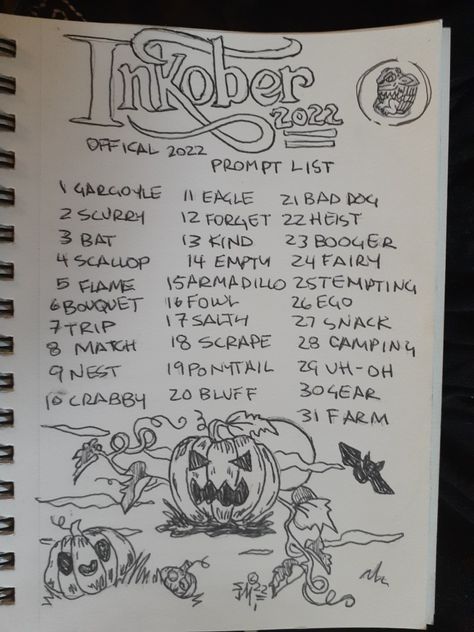 Inkober
2022
OFFICAL 2022
PROMPT LIST
1 GARGOYLE
2 SCURRY
3 BAT
4 SCALLOP
5 FLAME
6 BOUQUET
7 TRIP
8 MATCH
9 NEST
10 CRABBY
11 EAGLE
12 FORGET
13 KIND
14 EMPTY
15 ARMADILLO
16 FOWL
17 SALTY
18 SCRAPE
19 PONYTAIL
20 BLUFF
21 BAD DOG
22 HEIST
23 BOOGER
24 FAIRY
25 TEMPTING
26 EGO
27 SNACK
28 CAMPING
29 UH-OH
30 GEAR
31 FARM